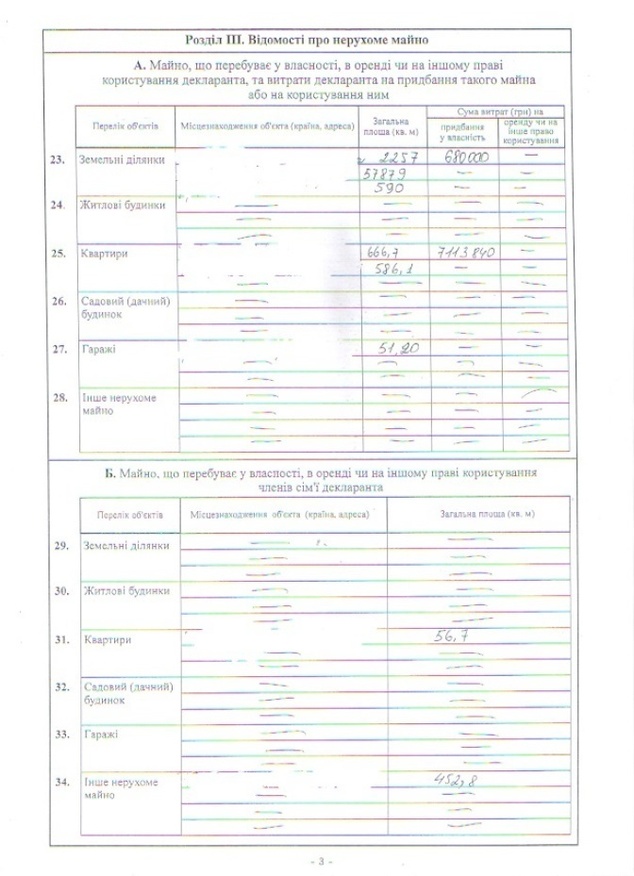 Розділ III. Відомості про нерухоме майно
А. Майно, що перебуває у власності, в оренді чи на іншому праві
користування декларанта, та витрати декларанта на придбання такого майна
або на користування ним
Перелік об'єктів
Місцезнаходження об'єкта (країна, адреса)
Загальна
площа (кв. м)
Сума витрат (грн) на
придбання
у власність
оренду чи на
інше право
користування
23. Земельні ділянки 2257 680000 —
57879 — —
590 — —
24. Житлові будинки — — —
— — — —
— — — —
25. Квартири 666,7 7113840 —
586,1 — —
— — — —
26. Садовий (дачний)
будинок
— — — —
— — — —
— — — —
27. Гаражі 51,20 — —
— — — —
— — — —
28. Інше нерухоме
майно
— — — —
— — — —
— — — —
— — — —
Б. Майно, що перебуває у власності, в оренді чи на іншому праві користування
членів сім'ї декларанта
Перелік об'єктів
Місцезнаходження об'єкта (країна, адреса)
Загальна площа (кв. м)
29. Земельні ділянки — —
— —
— —
30. Житлові будинки — —
— —
— —
31. Квартири 56,7
— —
— —
32. Садовий (дачний)
будинок
— —
— —
— —
33. Гаражі — —
— —
— —
34. Інше нерухоме
майно
452,8
— —
— —
— —
- 3 -